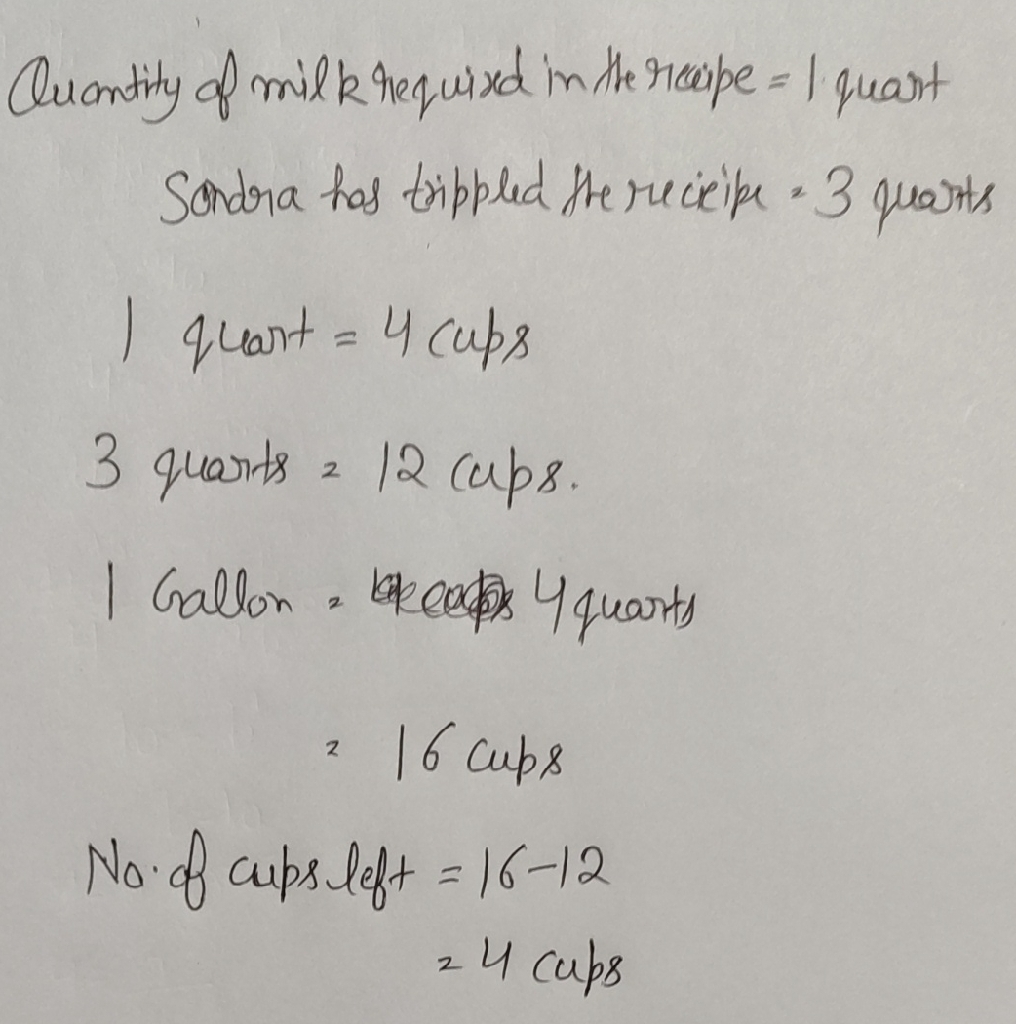 Quantity of milk required in the recipe = 1 quart
Sandra has trippled the recieipe = 3 quarts
1 quart = 4 cups
3 quarts = 12 cups.
1 Gallon = 4 quarts
= 16 cups
No. of cups left = 16-12
= 4 cups